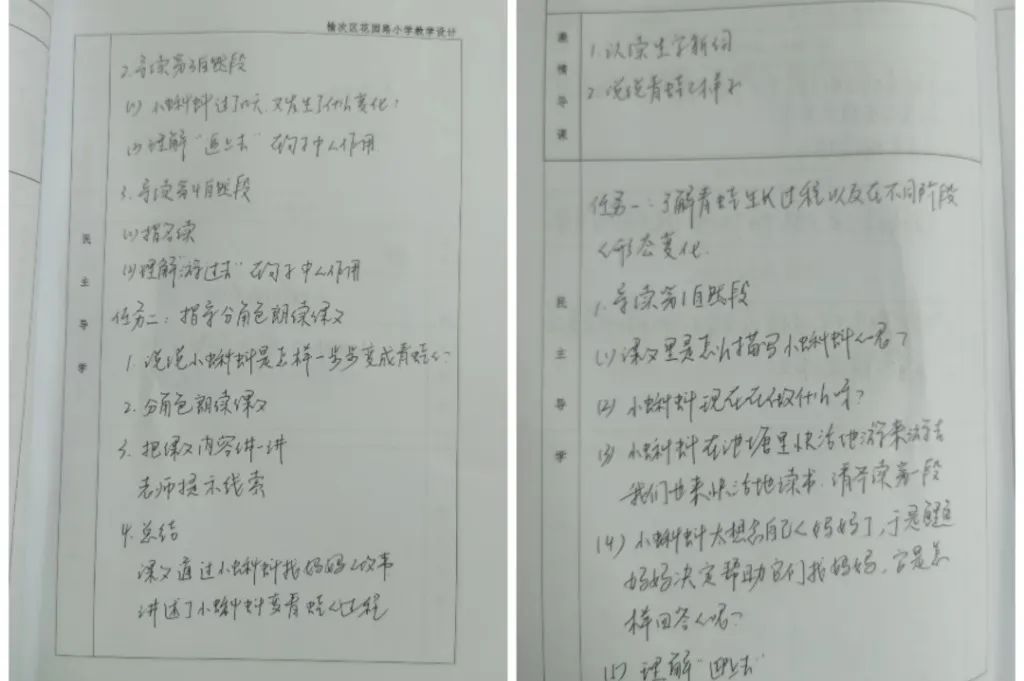 榆次区花园路小学教学设计
2.导读第3自然段
(1)小蝌蚪过了几天,又发生了什么变化?
(2)理解“追上去”在句子中的作用
3.导读第4自然段
(1)指名读
(2)理解“游过去”在句子中的作用
任务二:指导分角色朗读课文
1.说说小蝌蚪是怎样一步步变成青蛙的?
2.分角色朗读课文
3.把课文内容讲一讲
老师提示线索
4.总结
课文通过小蝌蚪找妈妈的故事
讲述了小蝌蚪变青蛙的过程
民主导学
激情导课
1.认读生字新词
2.说说青蛙的样子
任务一:了解青蛙生长过程以及在不同阶段
的形态变化.
1.导读第1自然段
(1)课文里是怎么描写小蝌蚪的呢?
(2)小蝌蚪现在在做什么呢?
(3)小蝌蚪在池塘里快活地游来游去
我们也来快活地读书.请齐读第一段
(4)小蝌蚪太想念自己的妈妈了,于是鲤鱼
妈妈决定帮助它们找妈妈,它是怎
样回答的呢?
(5)理解“迎上去”
民主导学